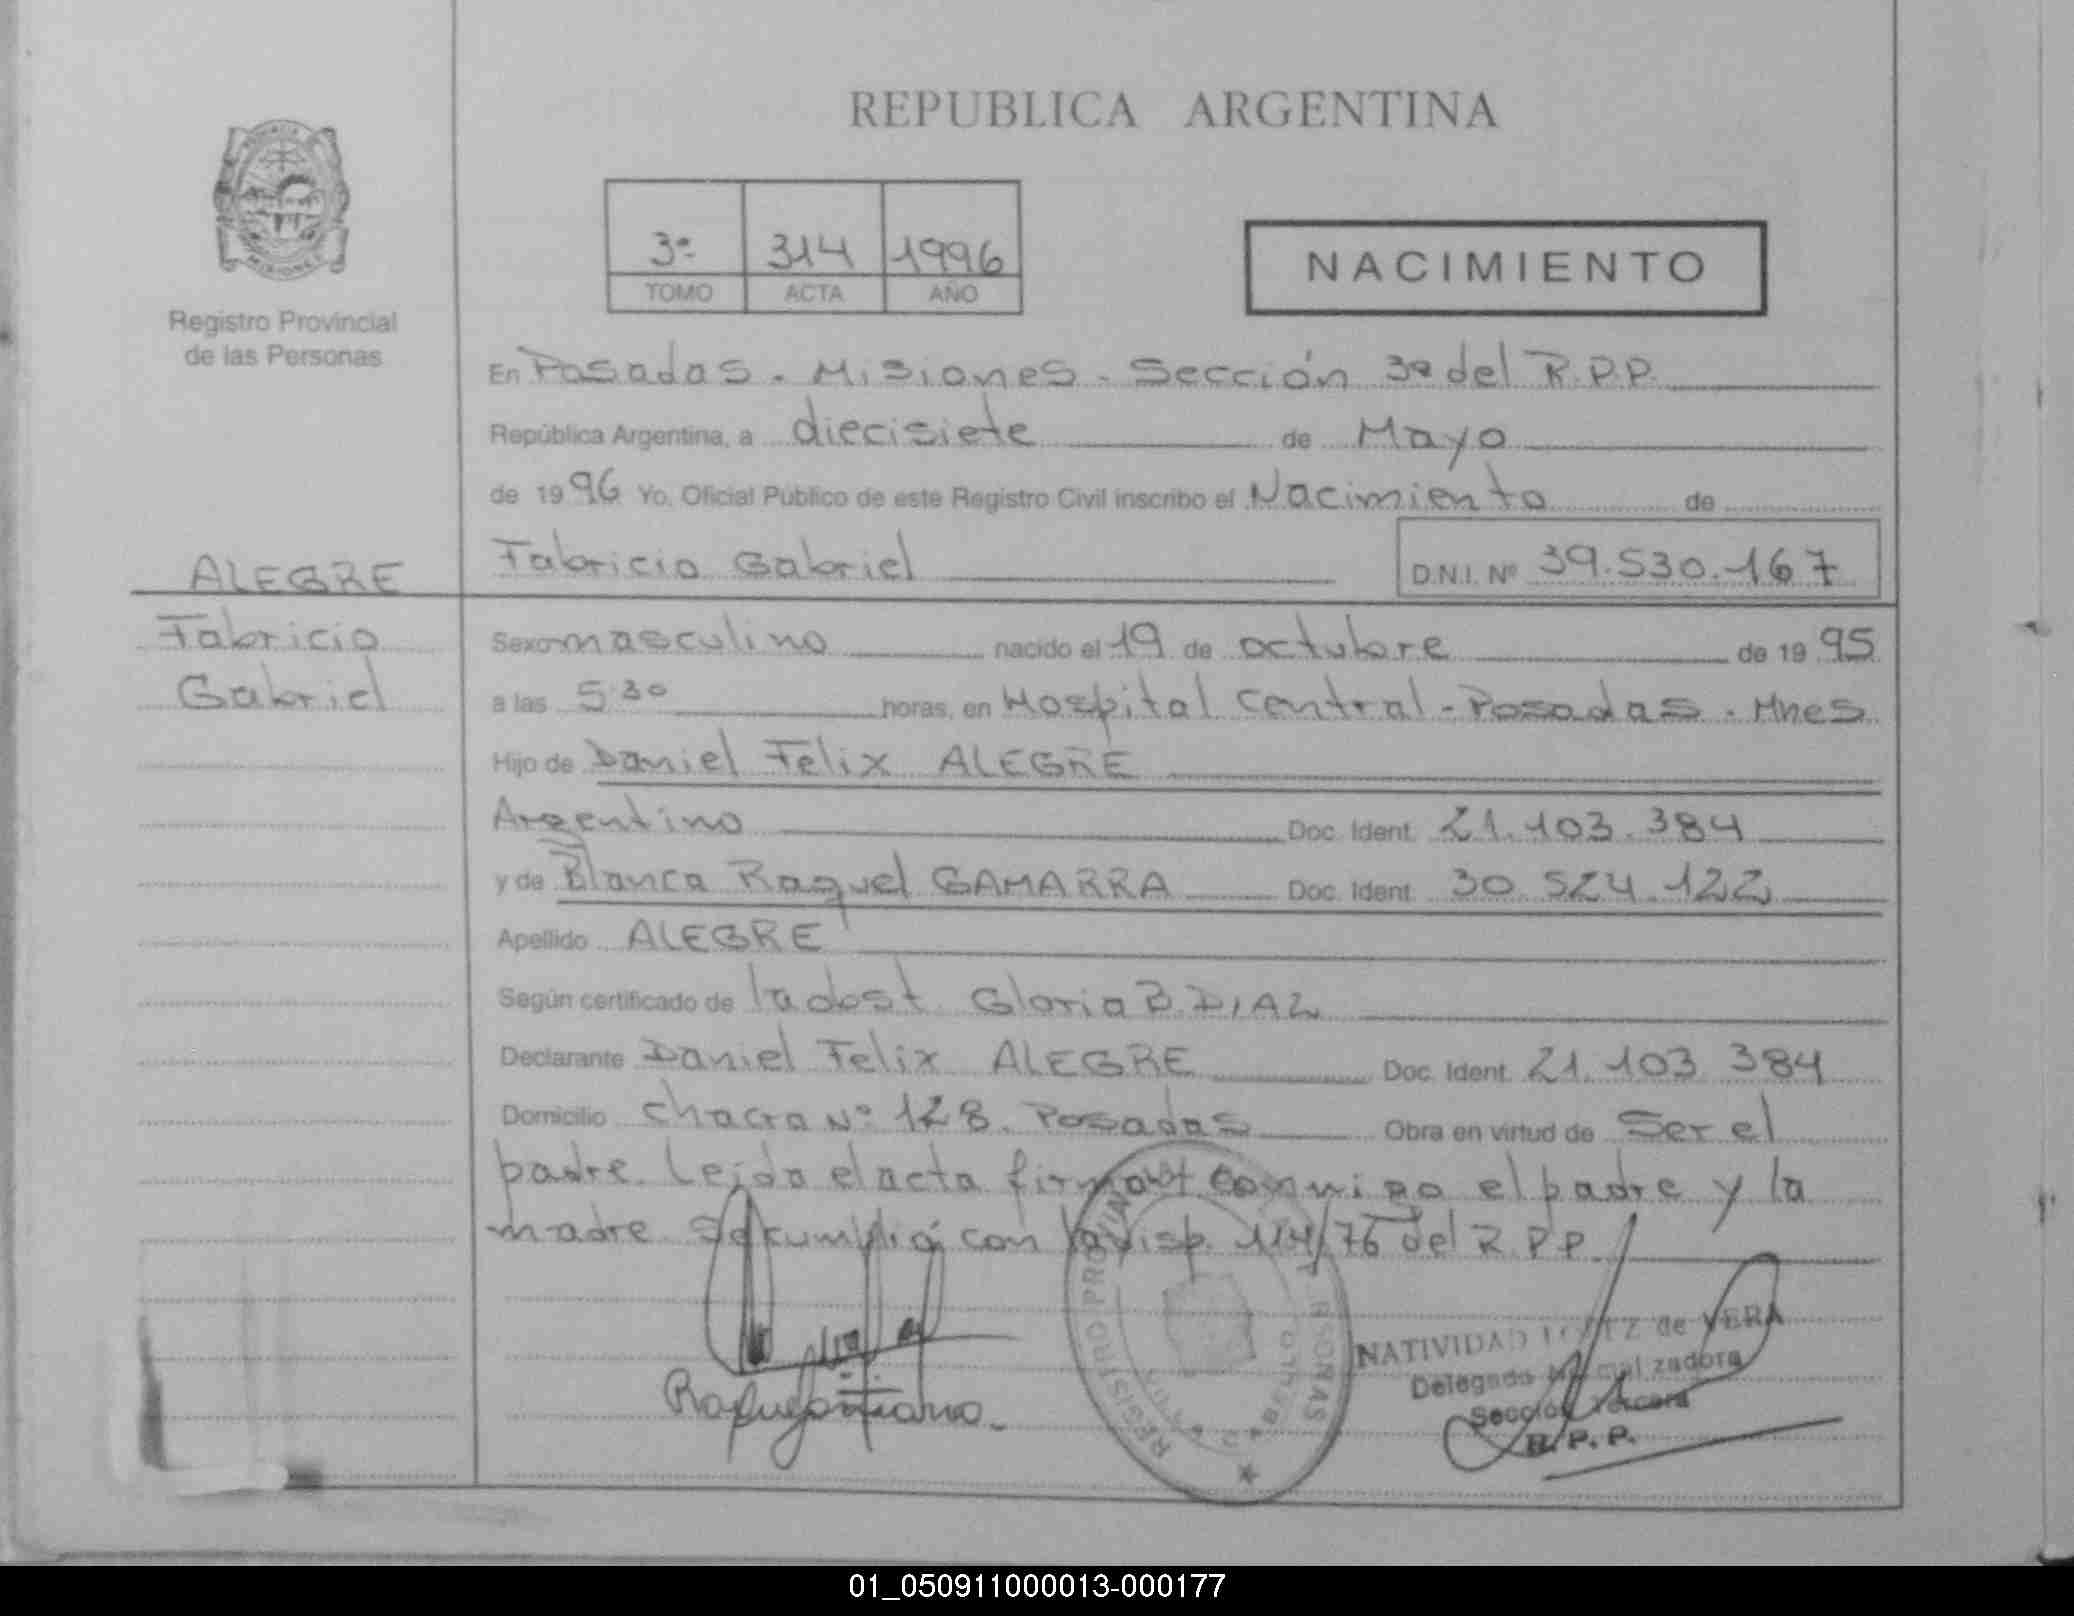 REPUBLICA ARGENTINA
PROVINCIA
MISIONES
Registro Provincial
de las Personas
3º 314 1996
TOMO ACTA AÑO
NACIMIENTO
En Posadas - Misiones - Sección 3ª del R.P.P.
República Argentina, a diecisiete de Mayo
de 1996 Yo, Oficial Público de este Registro Civil inscribo el Nacimiento de
Fabricio Gabriel D.N.I. Nº 39.530.167
ALEGRE
Fabricio
Gabriel
Sexo masculino nacido el 19 de octubre de 1995
a las 5 30 horas, en Hospital Central - Posadas - Mnes
Hijo de Daniel Felix ALEGRE
Argentino Doc. Ident. 21.103.384
y de Blanca Raquel GAMARRA Doc. Ident. 30.524.122
Apellido ALEGRE
Según certificado de la obst Gloria B. DIAZ
Declarante Daniel Felix ALEGRE Doc. Ident. 21.103.384
Domicilio Chacra Nº 128. Posadas Obra en virtud de Ser el
padre. Leida el acta firman conmigo el padre y la
madre. Se cumplió con la Disp. 114/76 del R.P.P.
REGISTRO PROVINCIAL PERSONAS
NATIVIDAD LOPEZ de VERA
Delegada Normalizadora
Sección Tercera
R.P.P.
01_050911000013-000177